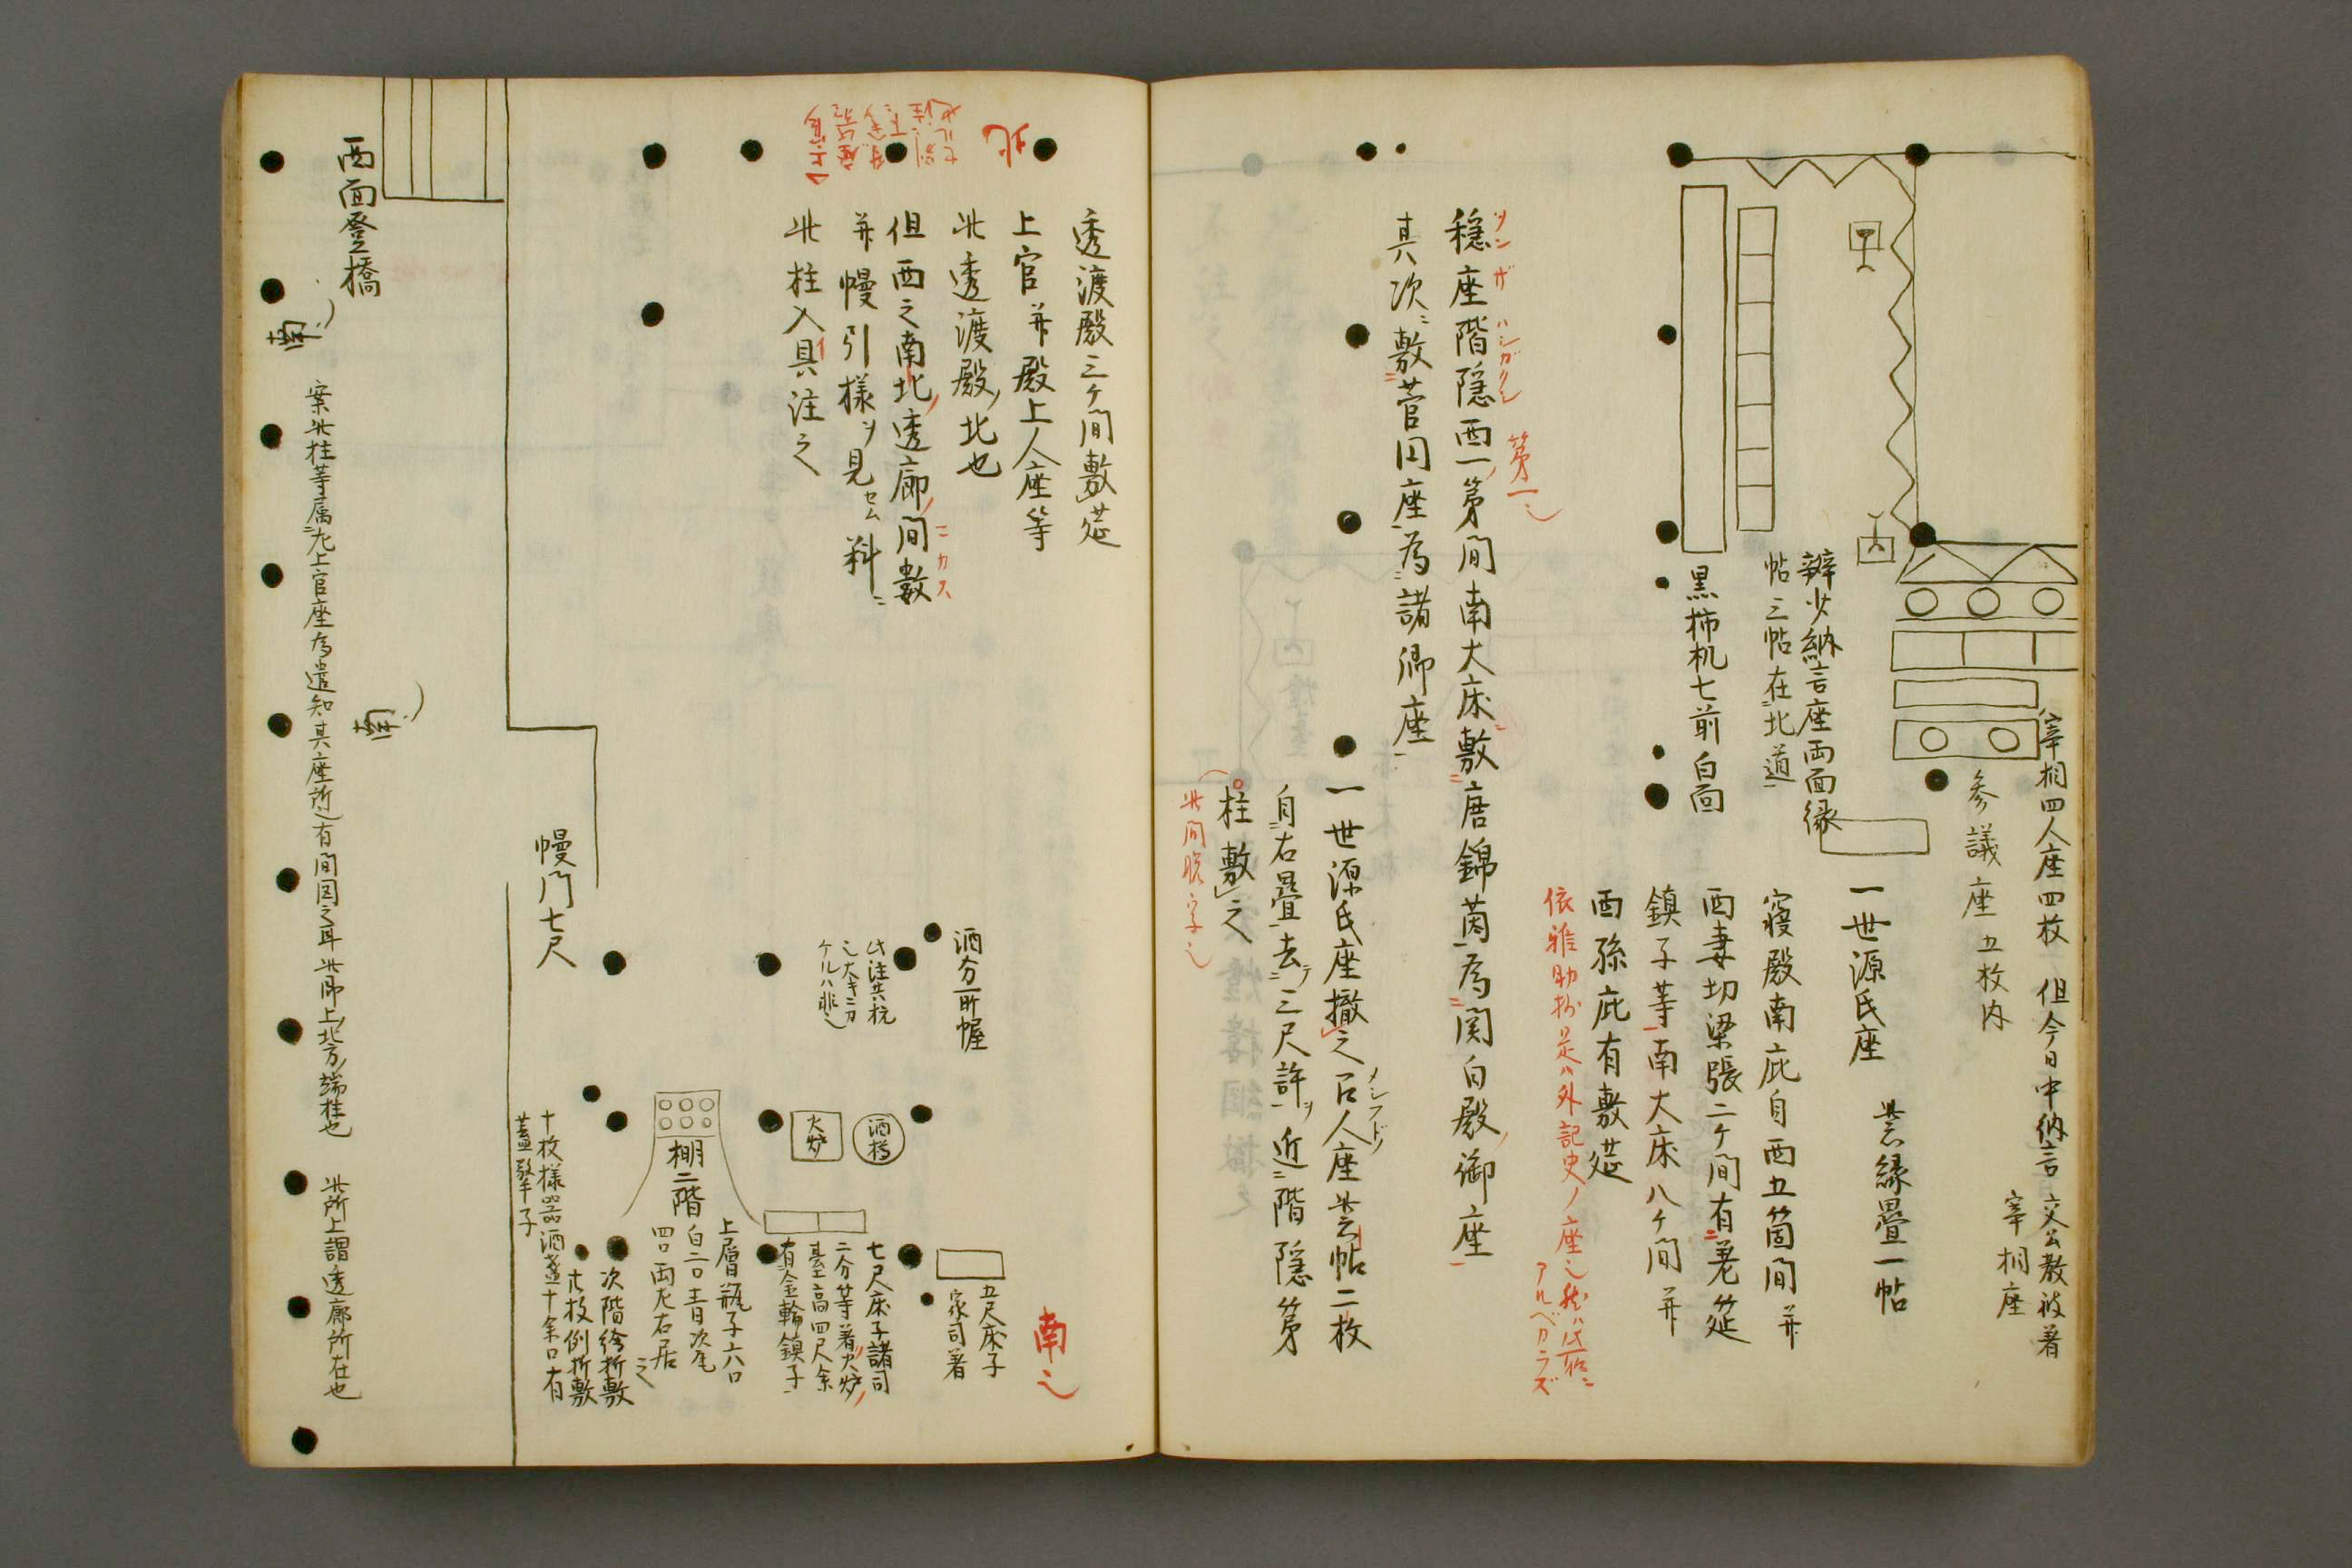 宰相四人座四枚 但今日中納言 文公教被着
宰相座
参議座五枚内
紫縁畳一帖
一世源氏座
辨少納言座両面縁
帖三帖在北道
寝殿南庇自西五箇間并
西妻切梁張二ケ間有差筵
黒柿机七前白面
鎮子等南大床八ケ間并
西孫庇有敷筵
依雅助抄是ハ外記史ノ座也
アルベカラズ
第一也
ヲンザ ハシガクシ
穏座階隠西一第間南大床敷唐錦茵為関白殿御座
其次敷菅円座為諸卿座
一世源氏座撤之召人座紫帖二枚
メシフド
自右畳去テ三尺許ヲ近階隠第
柱敷之
此間脱字也
北
透渡殿三ケ間敷筵
上官并殿上人座等
此透渡殿ノ北也
但西之南北ノ透廊ノ間数
ニカス
并幔引様ヲ見セム料ニ
此柱入具注之
南也
酒分所幄
五尺床子
家司着
酒樽
火炉
七尺床子諸司
二分等着火炉
臺高四尺余
有金輪鎮子
棚二階
上層瓶子六口
白二口青次尾
四口両左右居
之
次階給折敷
十枚例折敷
十枚様器酒盞十余口有
蓋擎子
幔門七尺
西面登橋
南
南
案此柱等属左上官座為遣知其座所有間図之耳此即上北方ノ端柱也
此所上謂透廊所在也